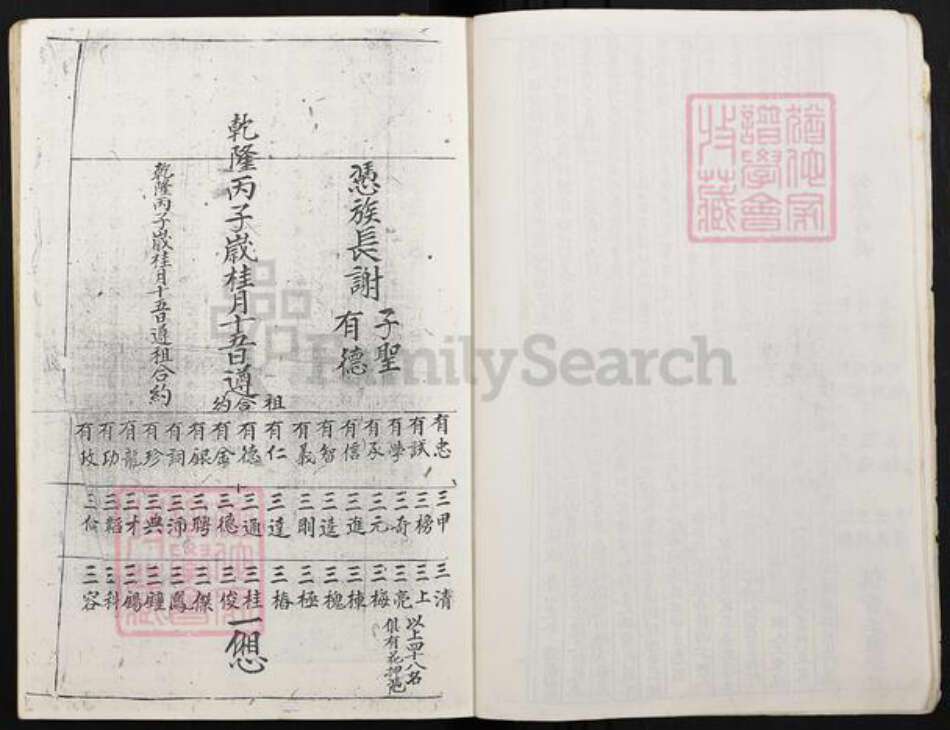 憑族長謝
子聖
有德
乾隆丙子歲桂月十五日遵
祖合約
乾隆丙子歲桂月十五日遵祖合約
有忠
有試
有學
有承
有信
有智
有義
有仁
有德
有金
有銀
有詞
有珍
有龍
有功
有政
三甲
三榜
三奇
三元
三進
三造
三剛
三達
三通
三德
三聘
三沛
三典
三才
三韜
三倫
三清
三上
三亮
三梅
三棟
三槐
三極
三椿
三桂
三俊
三傑
三鳳
三錫
三科
三容
一俱
以上四十八名
俱有花押
譜學會
收藏
FamilySearch